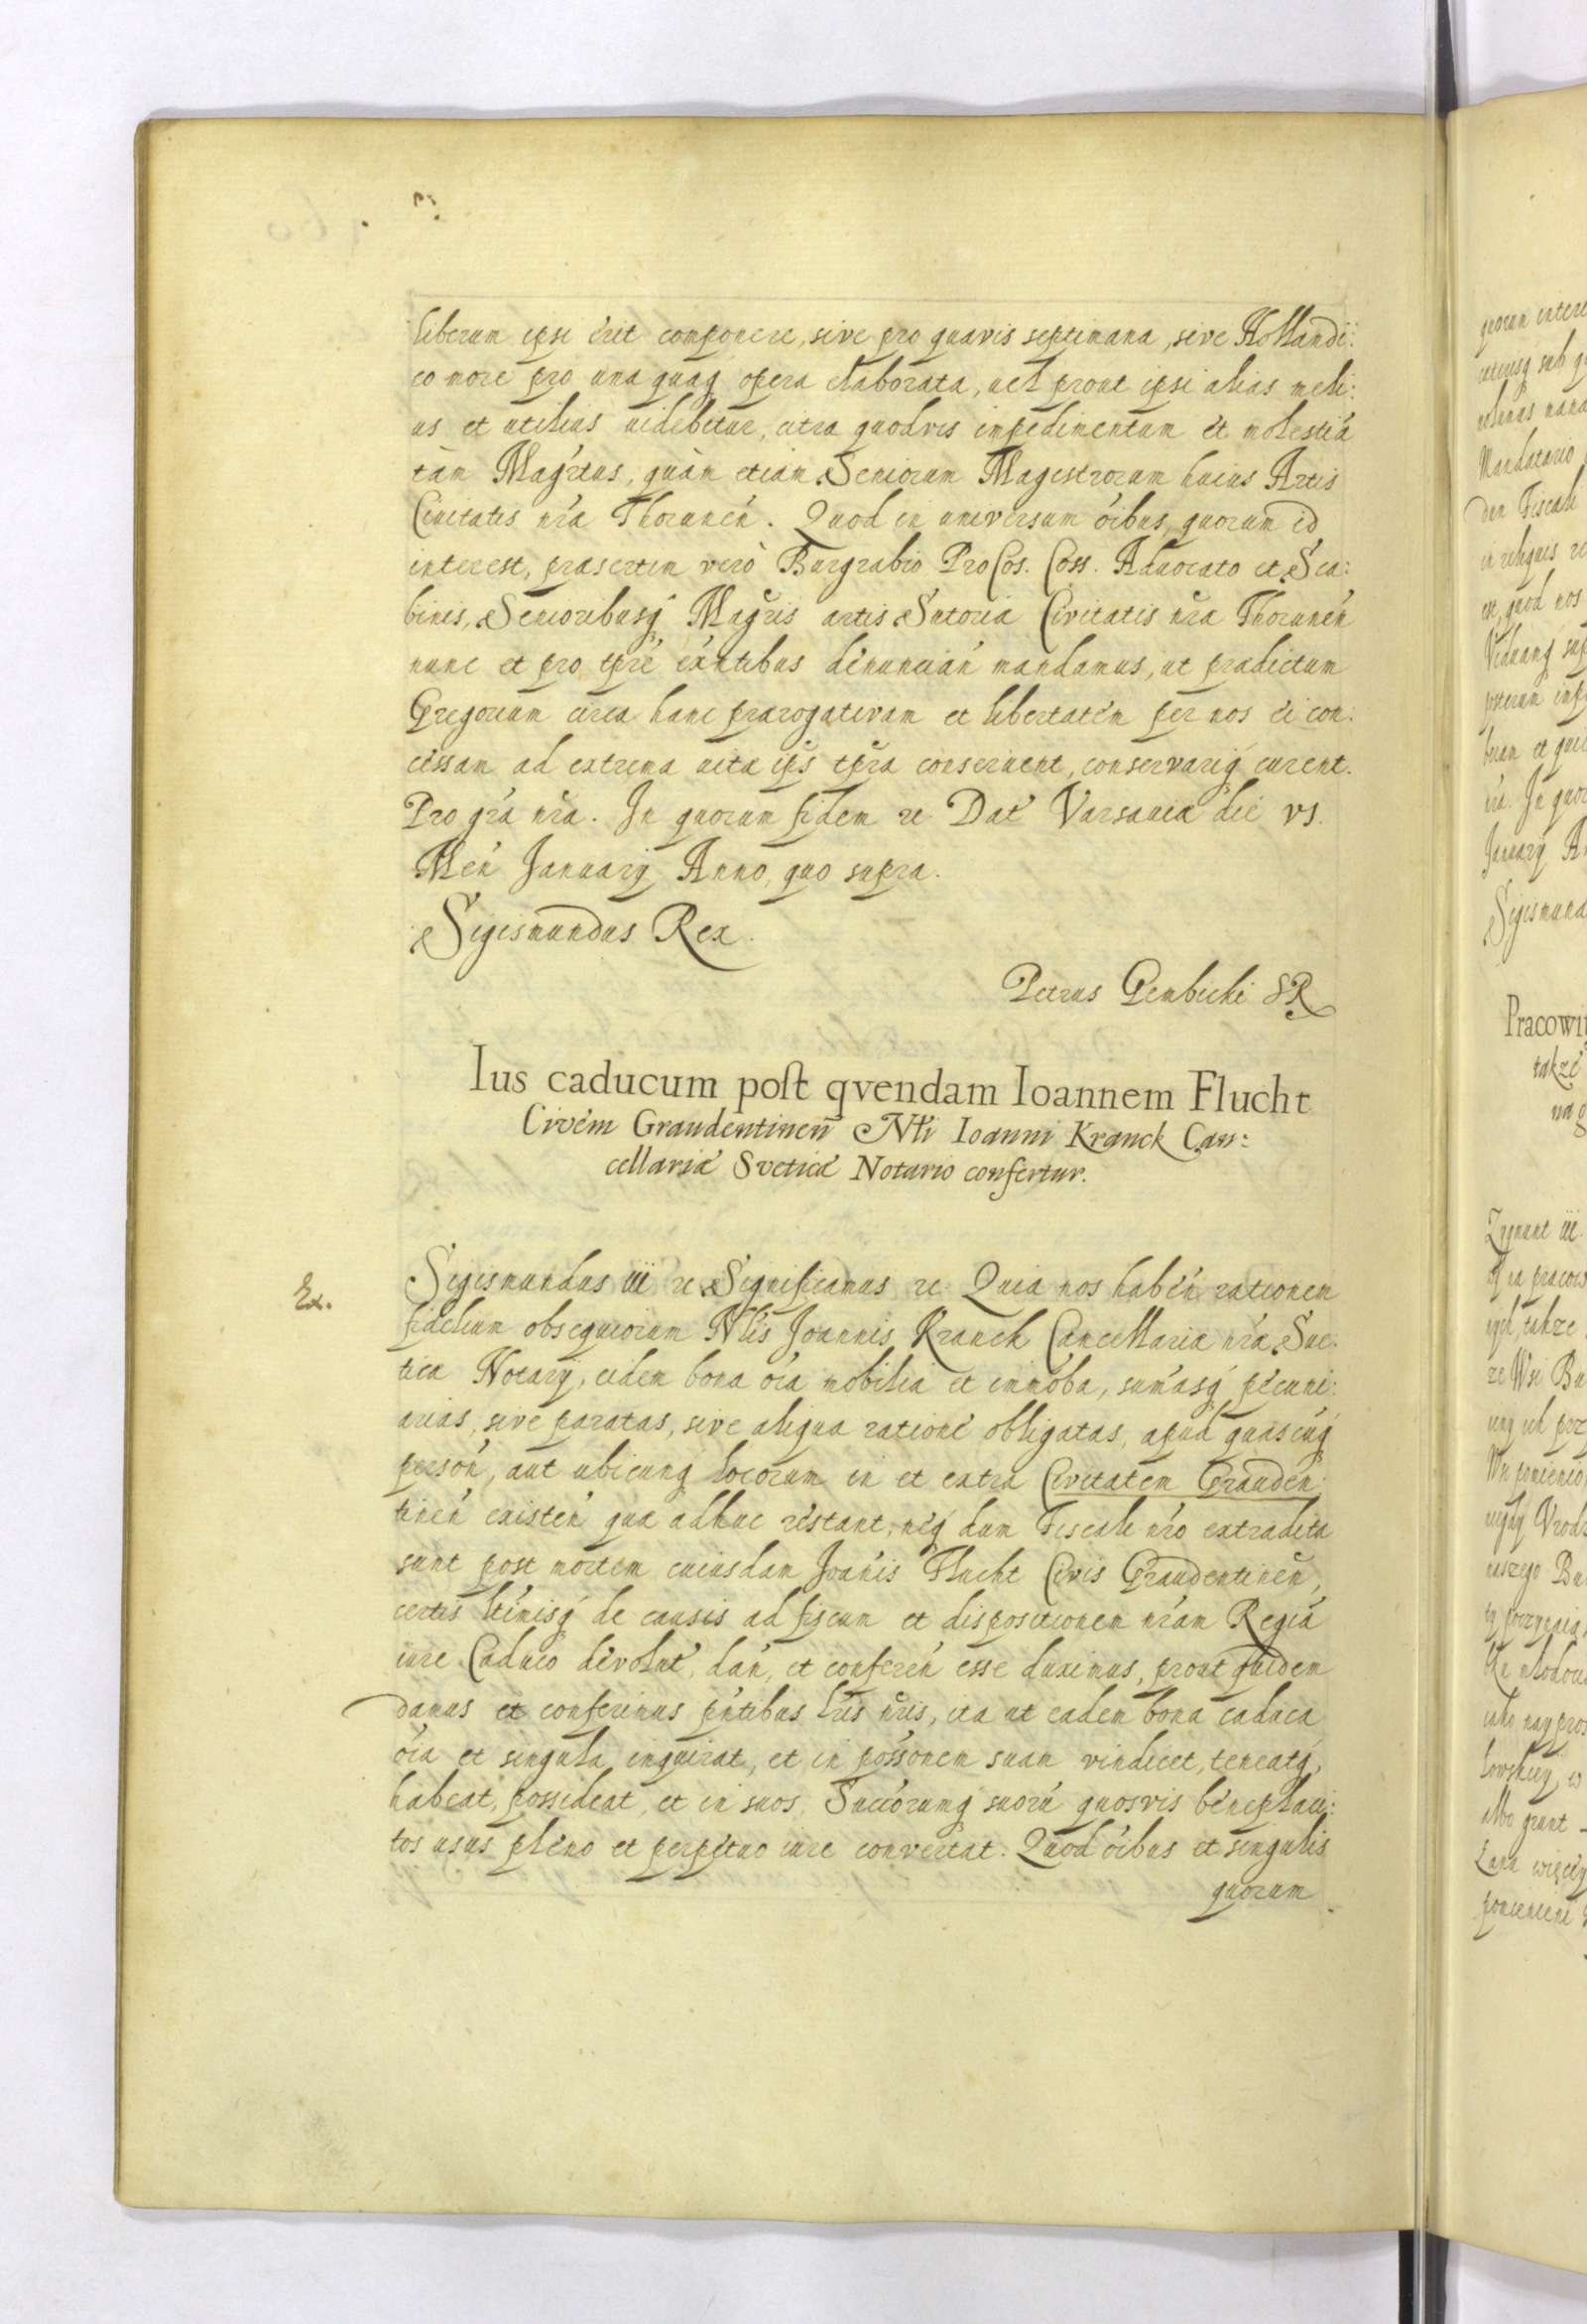 liberum ipsi erit componere, sive pro quavis septimana, sive Hollandi:
co more pro una quaq opera elaborata, uel prout ipsi alias meli:
us et utilius uidebitur, citra quodvis impedimentum et molestiá
tàm Magrtus, quàm etiam Seniorum Magistrorum huius Artis
Ciuitatis nra Thorunen. Quod in universum oibus, quorum id
interest, prasertim verò Burgrabio ProCos. Coss. Aduocato et Sca:
binis, Senioribusq Magris artis Sutoria Civitatis nra Thorunen
nunc et pro tpre exntibus denuncian mandamus, ut pradictum
Gregorium circa hanc prarogativam et libertatem per nos ei con:
cessam ad extrema uita ips tpra conseruent, conservariq curent.
Pro gra nra. In quorum fidem rc Dat Varsauia die vj.
Men January Anno, quo supra.
Sigismundus Rex.
Petrus Gembicki SR
Ius caducum post qvendam Ioannem Flucht
Civem Graudentinen Nli Ioanni Kranck Can:
cellaria Svetica Notario confertur.
Ex.
Sigismundus iii rc Significamus rc Quia nos haben rationem
fidelium obsequiorum Nlis Joannis Kranck Cancellaria nra Sue:
tica Notary, eidem bona oia mobilia et immoba, sumasq pecuni:
arias, sive paratas, sive aliqua ratione obligatas, apud quascuq
person, aut ubicunq locorum in et extra Civitatem Grauden:
tinen existen qua adhuc restant, neq dum Fiscali nro extradita
sunt post mortem cuiusdam Joanis Flucht Civis Graudentinen,
certis ltimisq de causis ad fiscum et dispositionem nram Regiá
iure Caduco devolut, dan, et conferen esse duximus, prout quidem
damus et conferimus pntibus lris nris, ita ut eadem bona caduca
oia et singula inquirat, et in possonem suam vindicet, teneatq,
habeat, possideat, et in suos, Succorumq suoru quosvis beneplaci:
tos usus pleno et perpetuo iure convertat. Quod oibus et singulis
quorum